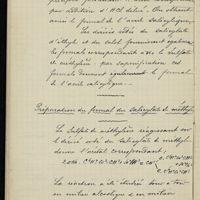 par addition d'HCl dilué. On obtient
ainsi le formal de l'acide salicylique.
Les dérivés sodés du salicylate
d'éthyle et du salol fournissent également
les formals correspondants avec le sulfate
de méthylène; par saponification ces
formals donnent également le formal de
l'acide salicylique.
Préparation du formal du salicylate de méthyle.
Le sulfate de méthylène réagissant sur
le dérivé sodé du salicylate de méthyle
donne l'acétal correspondant;
La réaction a été étudiée tour à tour
en milieu alcoolique et en milieu